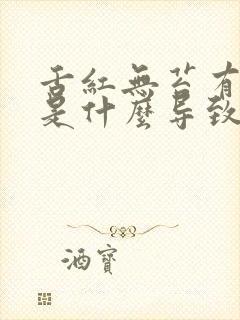 舌紅無苔有
是什麼导致
酒寶